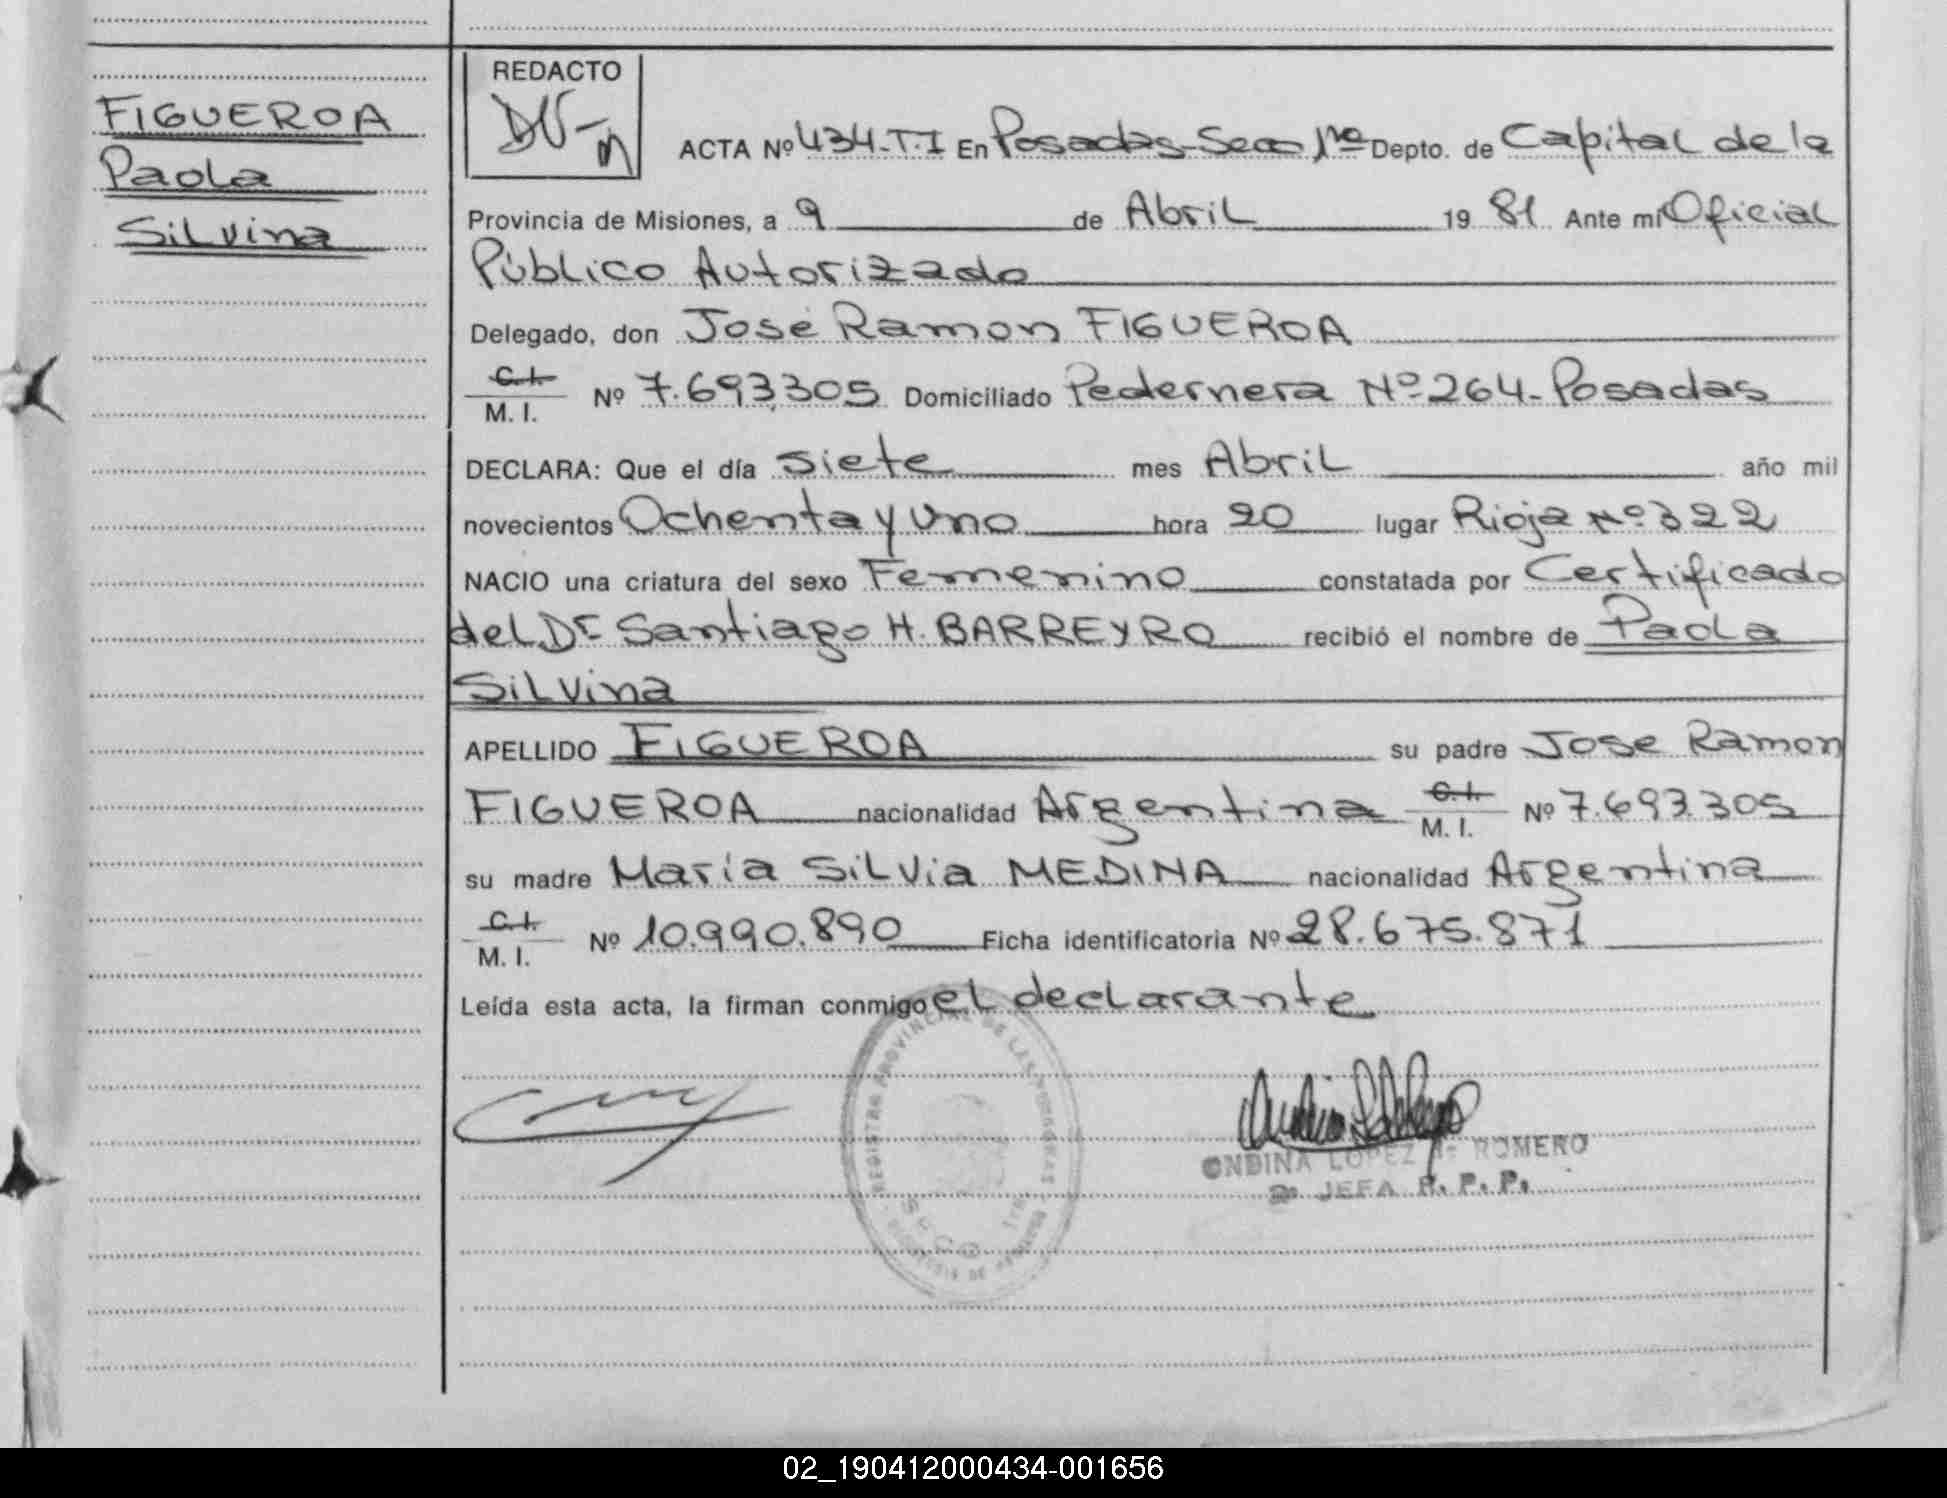 FIGUEROA
Paola
Silvina
REDACTO
ACTA Nº 434-T.I En Posadas-Secc 1ra Depto. de Capital de la
Provincia de Misiones, a 9 de Abril 19 81 Ante mí Oficial
Público Autorizado
Delegado, don José Ramon FIGUEROA
C.I.
M. I. Nº 7.693.305 Domiciliado Pedernera Nº 264-Posadas
DECLARA: Que el día siete mes Abril año mil
novecientos Ochenta y Uno hora 20 lugar Rioja Nº 322
NACIO una criatura del sexo Femenino constatada por Certificado
del Dr Santiago H. BARREYRO recibió el nombre de Paola
Silvina
APELLIDO FIGUEROA su padre Jose Ramon
FIGUEROA nacionalidad Argentina C.I. M. I. Nº 7.693.305
su madre María Silvia MEDINA nacionalidad Argentina
C.I.
M. I. Nº 10.990.890 Ficha identificatoria Nº 28.675.871
Leída esta acta, la firman conmigo el declarante
REGISTRO PROVINCIAL DE LAS PERSONAS
ONDINA LOPEZ de ROMERO
JEFA R. P. P.
02_190412000434-001656